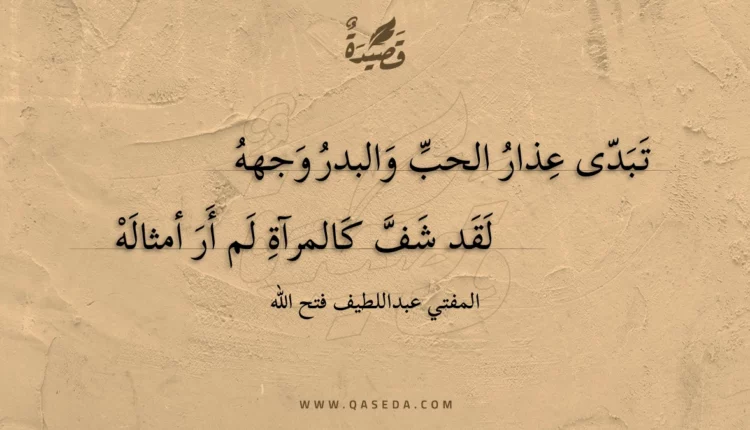 قَصِيدَةٌ
تَبَدّى عِذارُ الحبِّ وَالبدرُ وَجههُ
لَقَد شَفَّ كَالمرآةِ لَم أَرَ أمثالَهْ
المفتي عبداللطيف فتح الله
WWW.QASEDA.COM